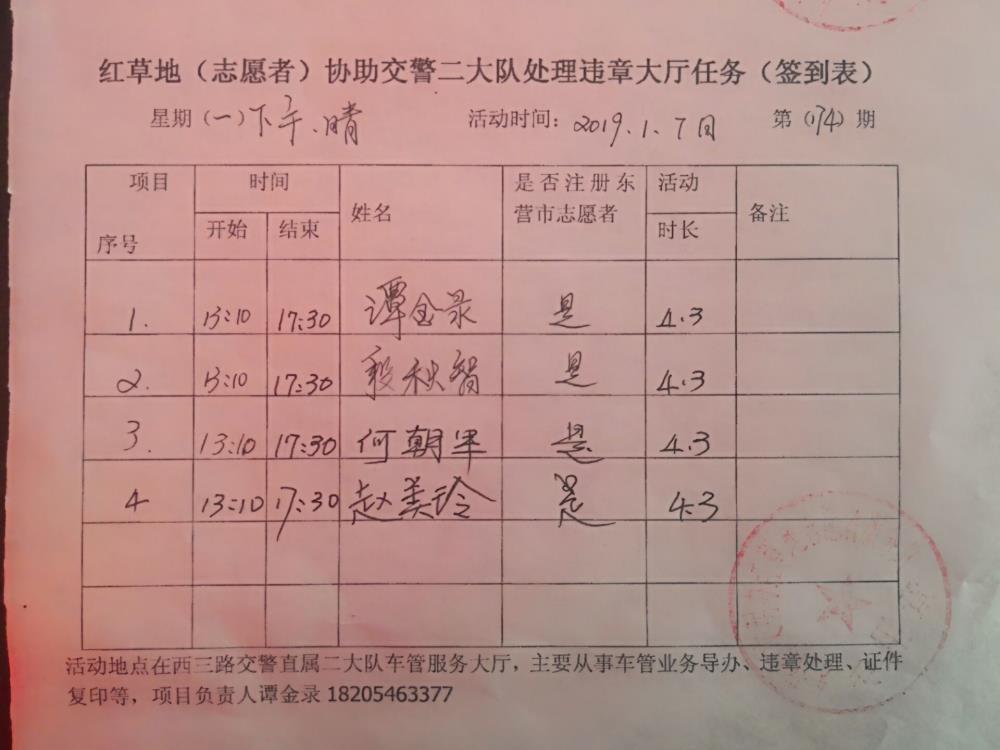 红草地（志愿者）协助交警二大队处理违章大厅任务（签到表）
星期（一）下午、晴 活动时间：2019.1.7日 第（174）期
项目 时间 姓名 是否注册东营市志愿者 活动时长 备注
序号 开始 结束
1. 13:10 17:30 谭金录 是 4.3
2. 13:10 17:30 秋智 是 4.3
3. 13:10 17:30 何朝 是 4.3
4 13:10 17:30 赵美玲 是 4.3
活动地点在西三路交警直属二大队车管服务大厅，主要从事车管业务导办、违章处理、证件
复印等，项目负责人谭金录 18205463377